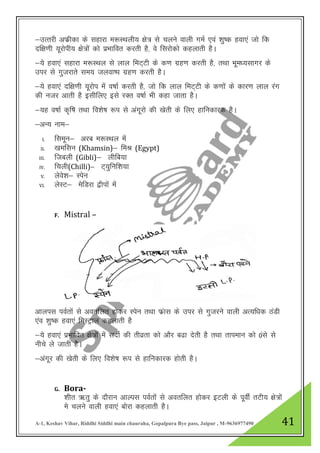 –उत्तरी अफ्रीका के सहारा मरूस्थलीय क्षेत्र से चलने वाली गर्म एवं शुष्क हवाएं जो कि
दक्षिणी यूरोपीय क्षेत्रों को प्रभावित करती है, वे सिरोको कहलाती है।
–ये हवाएं सहारा मरूस्थल से लाल मिट्टी के कण ग्रहण करती है, तथा भूमध्यसागर के
उपर से गुजराते समय जलवाष्प ग्रहण करती है।
–ये हवाएं दक्षिणी यूरोप में वर्षा करती है, जो कि लाल मिट्टी के कणों के कारण लाल रंग
की नजर आती है इसीलिए इसे रक्त वर्षा भी कहा जाता है।
–यह वर्षा कृषि तथा विशेष रूप से अंगूरों की खेती के लिए हानिकारक है।
–अन्य नाम–
I. सिमून– अरब मरूस्थल में
II. खमसिन (Khamsin)– मिश्र (Egypt)
III. जिबली (Gibli)– लीबिया
IV. चिली(Chilli)– ट्युनिशिया
V. लेवेश– स्पेन
VI. लेस्ट– मेडिरा द्वीपों में
F. Mistral –
Mistral
फ्रांस
आल्पस पर्वत
H.P
बोरा पवने
इटली L.P.
L.P.
स्पेन
आलपस पर्वतों से अवतलित होकर स्पेन तथा फ्रांस के उपर से गुजरने वाली अत्यधिक ठंडी
एंव शुष्क हवाएं मिस्ट्राल कहलाती है
–ये हवाएं प्रभावित क्षेत्रों में सर्दी की तीव्रता को और बढा देती है तथा तापमान को 0से से
नीचे ले जाती है।
–अंगूर की खेती के लिए विशेष रूप से हानिकारक होती है।
G. Bora-
शीत ऋतु के दौरान आल्पस पर्वतों से अवतलित होकर इटली के पूर्वी तटीय क्षेत्रों
मे चलने वाली हवाएं बोरा कहलाती है।
A-1, Keshav Vihar, Riddhi Siddhi main chauraha, Gopalpura Bye pass, Jaipur , M-9636977490
41